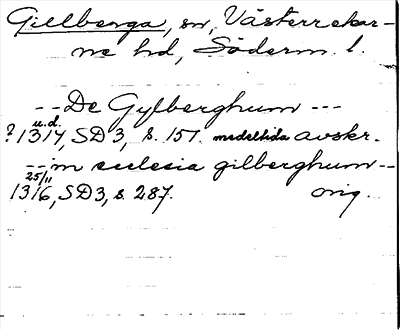 Gillberga, sn, Västerrekar-
ne hd, Söderm. l.
-- De Gylberghum ---
u.d.
? 1314, SD3, s. 151. medeltida avskr.
-- in ecclesia gilberghum --
25/11
1316, SD3, s. 287. orig.